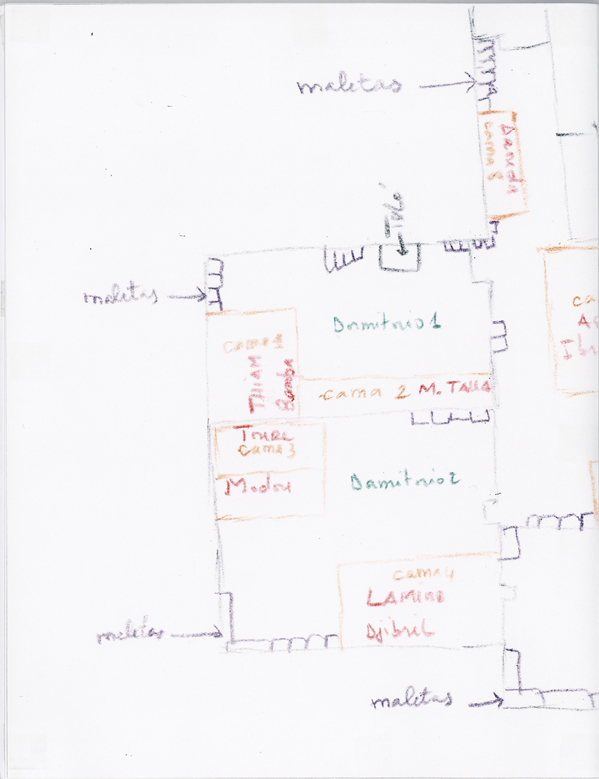 maletas
cama 8
Dauda
Tulé
maletas
Dormitorio 1
cama 1
THIAM
Bamba
ca
As
Ibr
cama 2 M. TALLA
TOURE
cama 3
Modou
Dormitorio 2
cama 4
LAMINE
Djibril
maletas
maletas